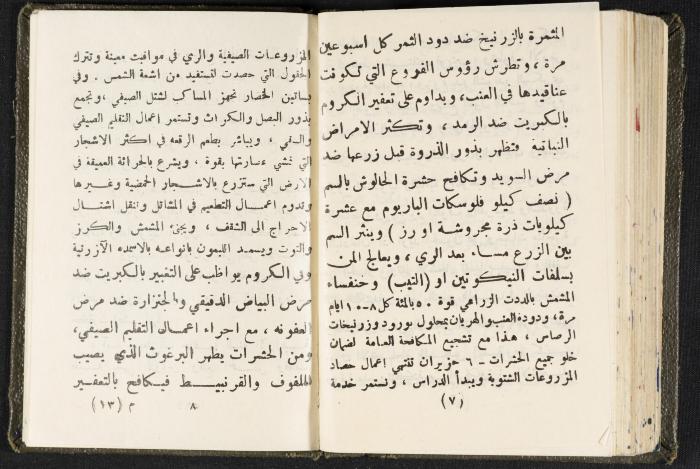 المثمرة بالزرنيخ ضد دود الثمر كل اسبوعين
مرة ، وتطرش رؤوس الفروع التي تكونت
عناقيدها في العنب ، ويداوم على تعفير الكروم
بالكبريت ضد الرمد ، وتكثر الامراض
النباتية وتظهر بذور الذروة قبل زرعها ضد
مرض السويد وتكافح حشرة الحالوش بالسم
( نصف كيلو فلوسكات الباريوم مع عشرة
كيلويات ذرة مجروشة او رز ) وينثر السم
بين الزرع مساء بعد الري ، ويعالج المن
بسلفات النيكوتين او ( التيب ) وخنفساء
المشمش بالددت الزراعي قوة ٥٠ بالمئة كل ٨-١٠ ايام
مرة ، ودودة العنب والهريان بمحلول بوردو وزرنيخات
الرصاص ، هذا مع تشجيع المكافحة العامة لضمان
خلو جميع الحشرات - ٦ حزيران تنتهي اعمال حصاد
المزروعات الشتوية ويبدأ الدراس ، ونستمر خدمة
(٧)
المزروعات الصيفية والري في مواقيت معينة وتترك
الحقول التي حصدت لتستفيد من اشعة الشمس . وفي
بساتين الخضار تجهز المساكب لشتل الصيفي ، وتجمع
بذور البصل والكراث وتستمر اعمال التقليم الصيفي
والسقي ، ويباشر بطعم الرقعه في اكثر الاشجار
التي تمشي عسارتها بقوة ، ويشرع بالحراثة العميقة في
الارض التي ستزرع بالاشجار الحمضية وغيرها
وتدوم اعمال التطعيم في المشاتل وتنقل اشتال
الاحراج الى الشقف ، ويجنى المشمش والكرز
والتوت ويسمد الليمون بانواعه بالاسمده الآزوتية
وفي الكروم يواظب على التغبير بالكبريت ضد
مرض البياض الدقيقي والجنزارة ضد مرض
العفونه ، مع اجراء اعمال التقليم الصيفي ،
ومن الحشرات يظهر البرغوث الذي يصيب
الملفوف والقرنبيط فيكافح بالتعفير
٨
م (١٣)